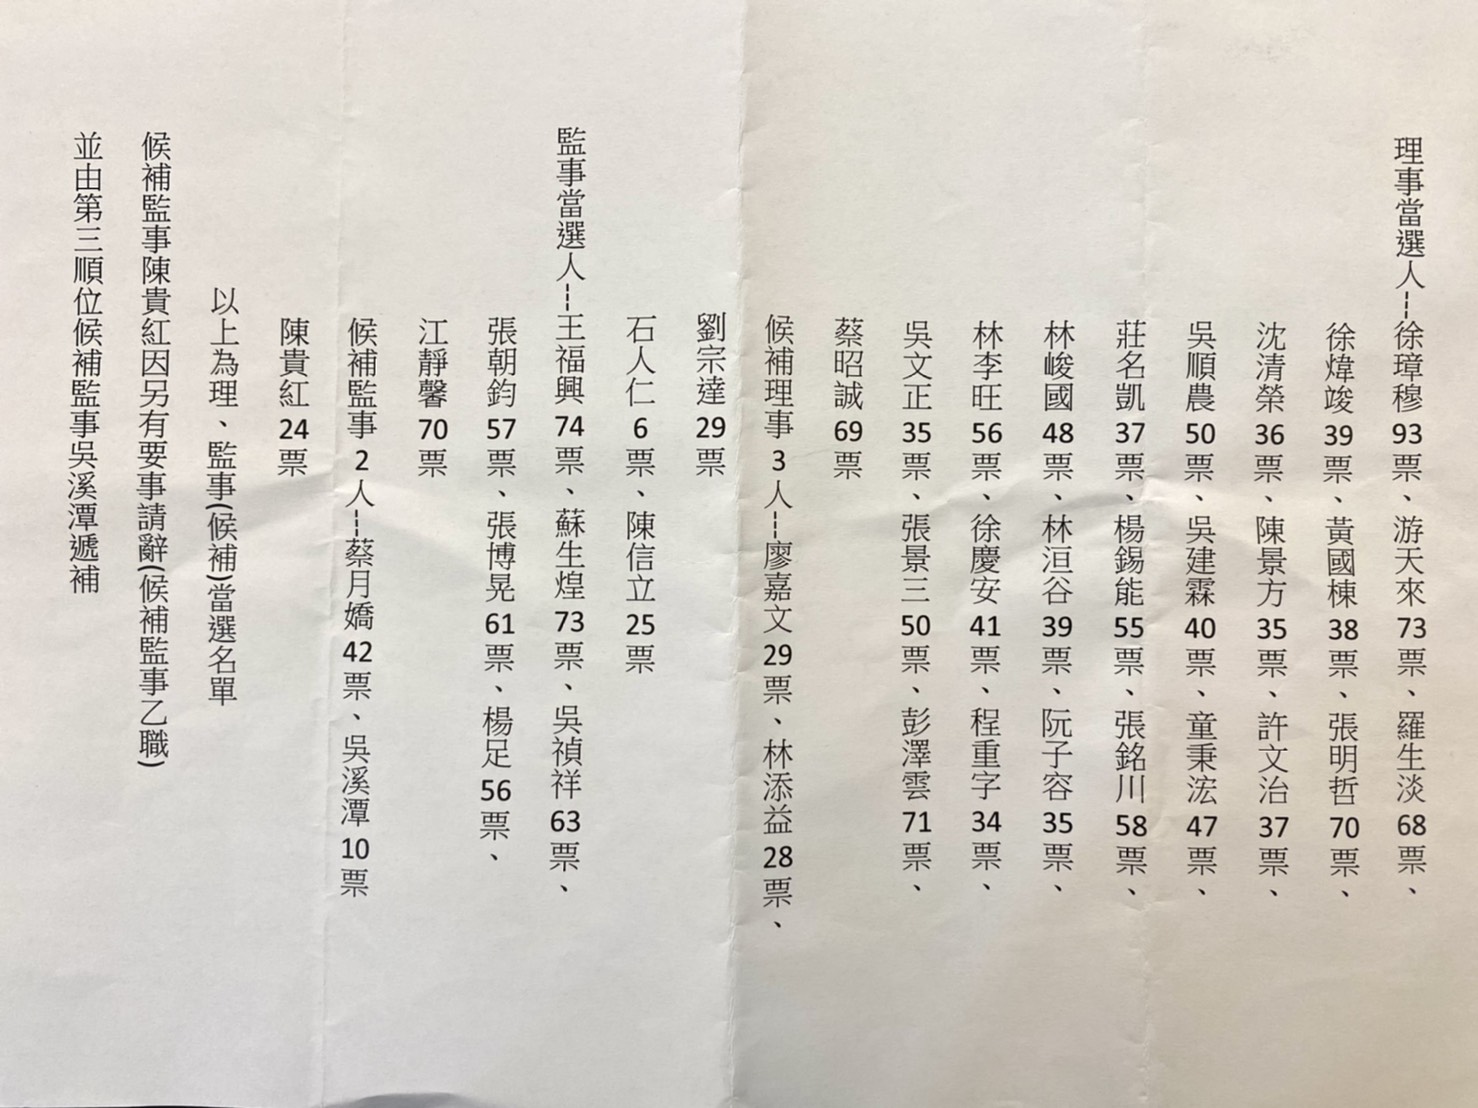 理事當選人---徐璋穆93票、游天來73票、羅生淡68票、
徐煒竣39票、黃國棟38票、張明哲70票、
沈清榮36票、陳景方35票、許文治37票、
吳順農50票、吳建霖40票、童秉浤47票、
莊名凱37票、楊錫能55票、張銘川58票、
林峻國48票、林洹谷39票、阮子容35票、
林李旺56票、徐慶安41票、程重字34票、
吳文正35票、張景三50票、彭澤雲71票、
蔡昭誠69票
候補理事3人---廖嘉文29票、林添益28票、
劉宗達29票
石人仁6票、陳信立25票
監事當選人---王福興74票、蘇生煌73票、吳禎祥63票、
張朝鈞57票、張博晃61票、楊足56票、
江靜馨70票
候補監事2人---蔡月嬌42票、吳溪潭10票
陳貴紅24票
以上為理、監事(候補)當選名單
候補監事陳貴紅因另有要事請辭(候補監事乙職)
並由第三順位候補監事吳溪潭遞補